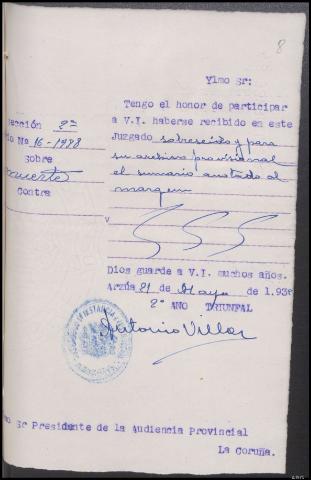 8
Ylmo Sr:
Tengo el honor de participar
a V.I. haberse recibido en este
Juzgado sobreseido y para
su archivo provisional
el sumario anotado al
margen
ección 2ª
io Nº 16-1938
Sobre
muerte
Contra
V
Dios guarde a V.I. muchos años.
Arzúa 21 de Mayo de 1.938
2º AÑO TRIUNFAL
Antonio Villar
mo Sr Presidente de la Audiencia Provincial
La Coruña.